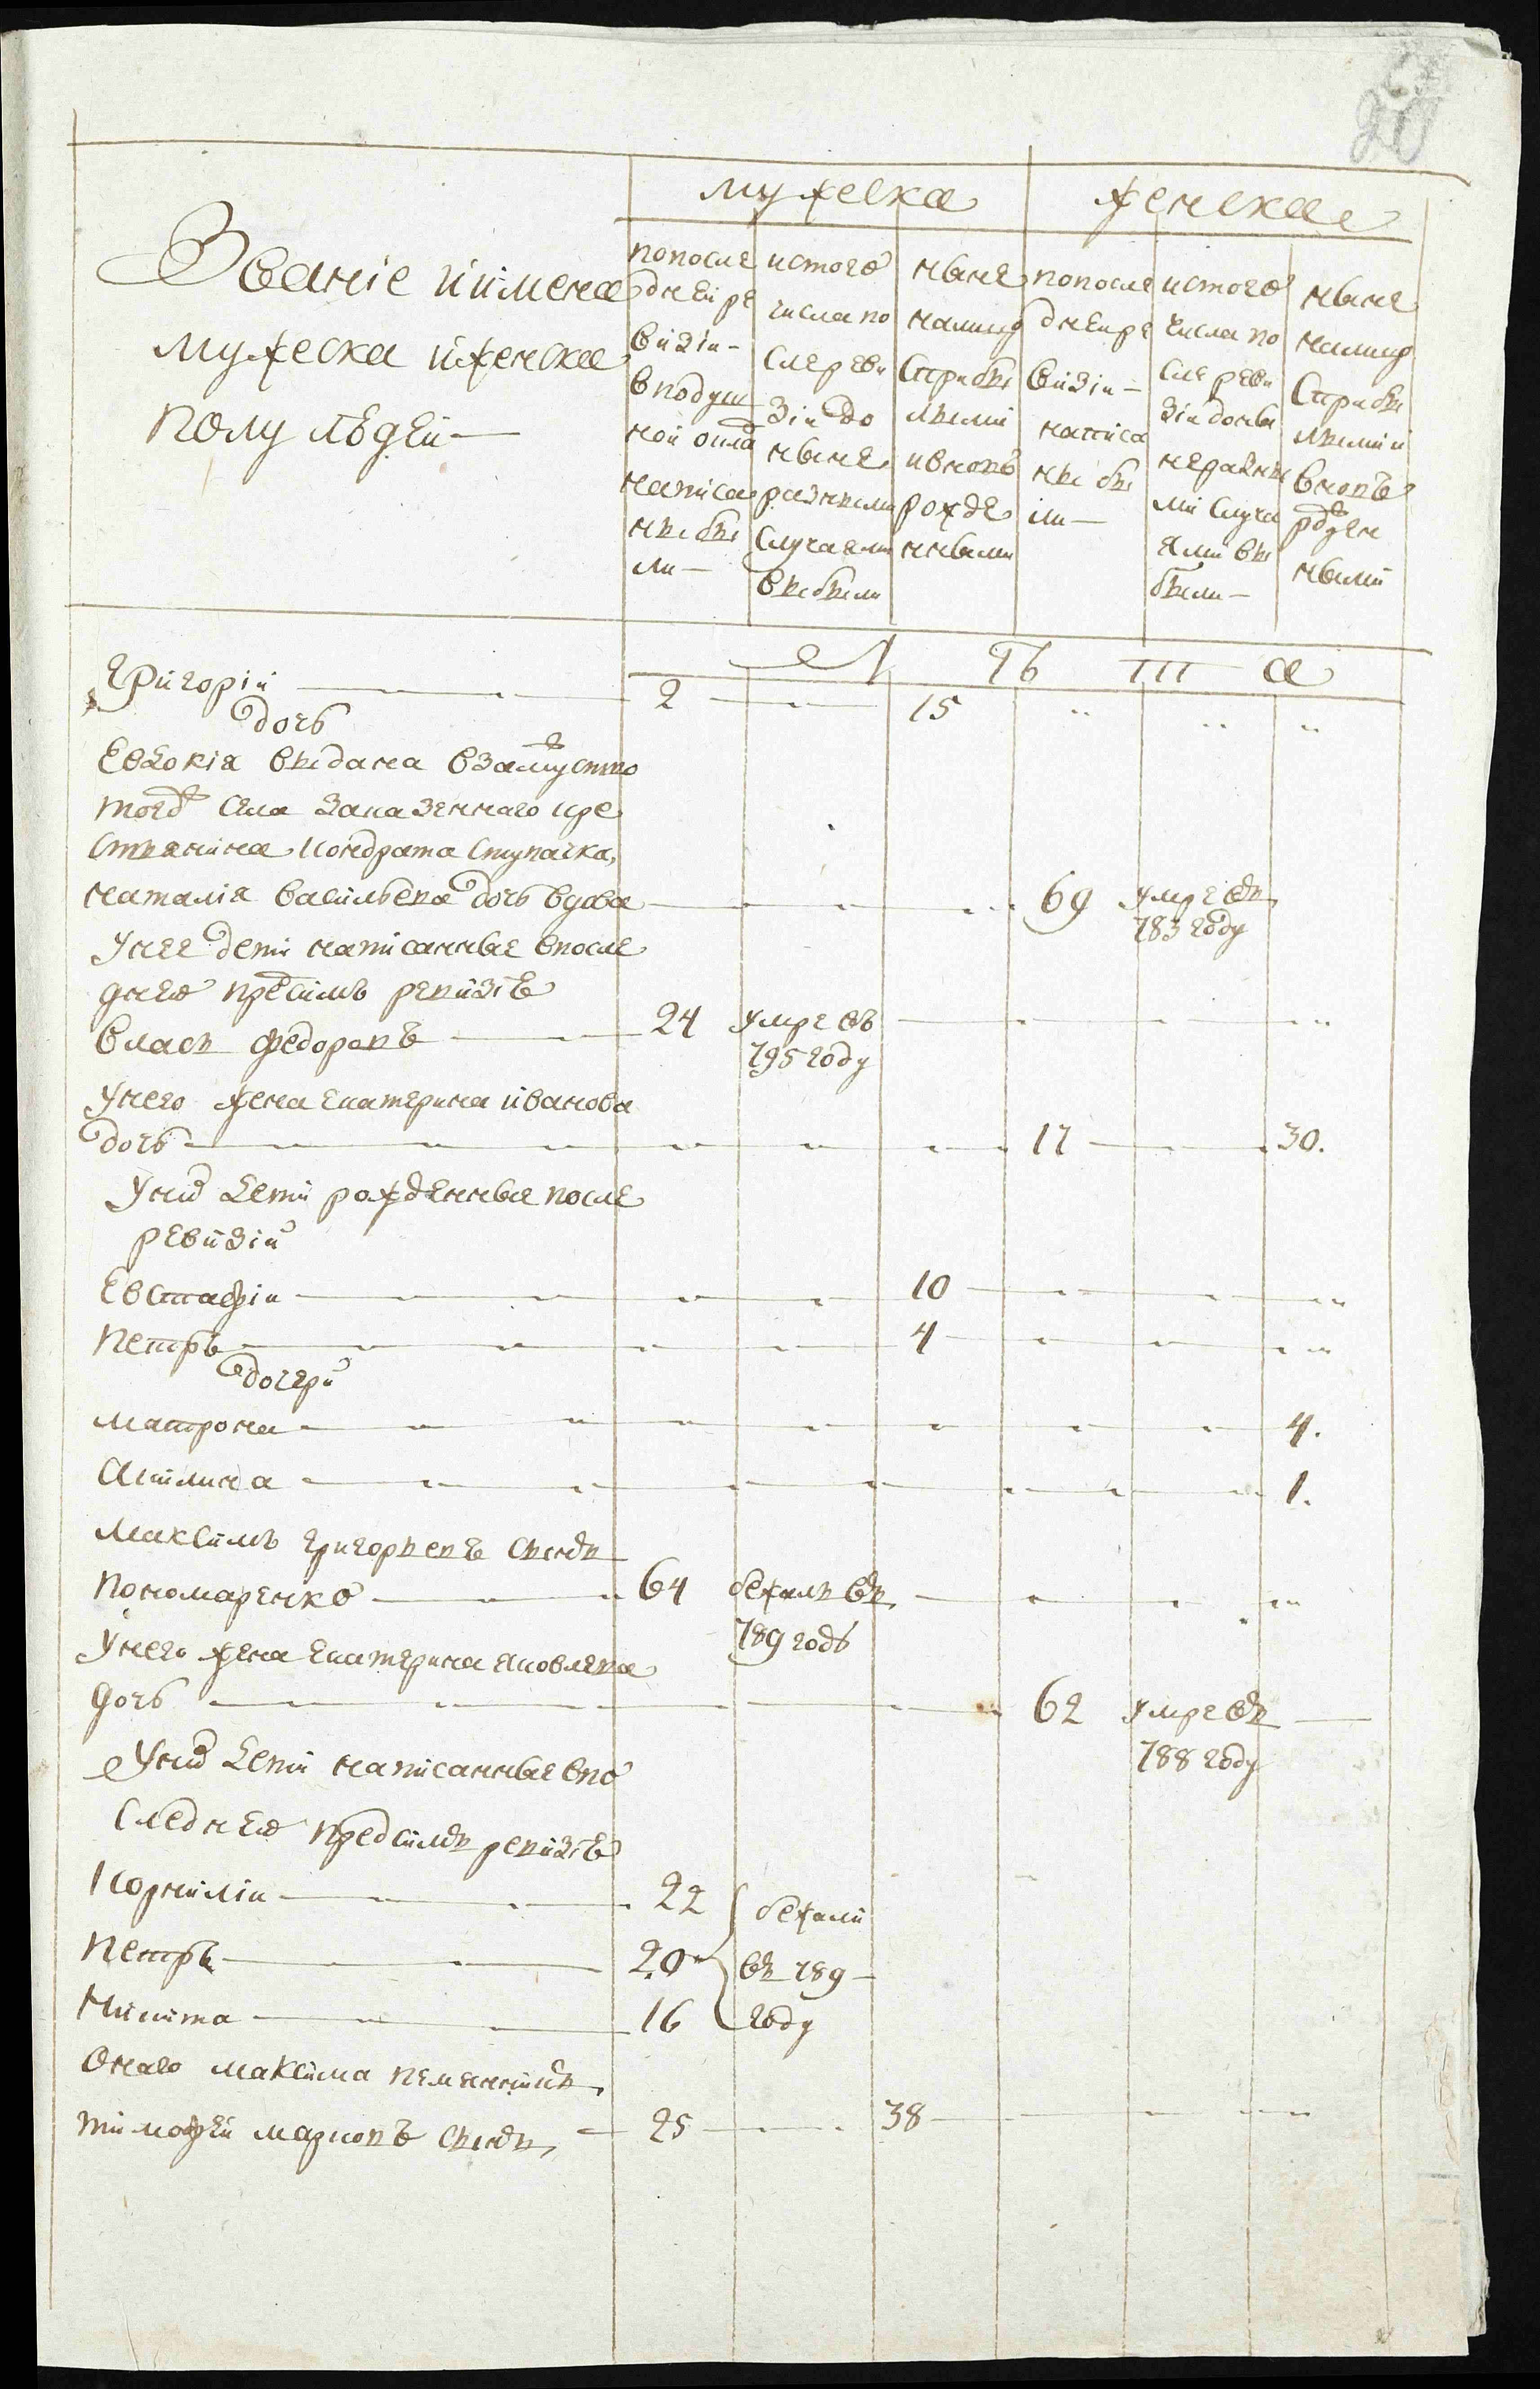 20
мужеска
женска
Званіе иимена
мужеска иженска
полу людей
попосле
дней ре
визіи
вподуш
ной окла
написа
ны бы
ли
истого
числа по
сле реви
зіи до
ныне
разными
случаями
выбыли
ныне
налицо
сприбы
лыми
ивновь
рожде
нными
попосле
дней ре
визіи
написа
ны бы
ли
истого
числа по
сле реви
зіи доны
неразны
ми случа
ями вы
были
ныне
налицо
сприбы
лыми и
вновь
рожден
ными
Л Ѣ Т А
Григорій 2 15
дочь
Евдокія выдана взамужство
тогож села казенного кре
стянина Кондрата Ступачка,
наталія васильева дочь вдова 69 умре въ
783 году
Унее дети написанные впосле
днею пред симъ ревизію
власъ федоровъ 24 умре въ
795 году
Унего жена екатерина иванова
дочь 17 30.
Уних дети рожденные после
ревизіи
Евстафіи 10
петръ 4
дочери
матрона 4.
Акилина 1.
Максимъ григорьевъ сынъ
пономаренко 64 бежалъ въ
789 годъ
Унего жена екатерина яковлева
дочь 62 умре въ
788 году
Уних дети написанные впо
следнею предсимъ ревизію
Корниліи 22 бежали
петръ 20 въ 789
Никита 16 году
Онаго максима племянникъ
тимофеи марковъ сынъ 25 38